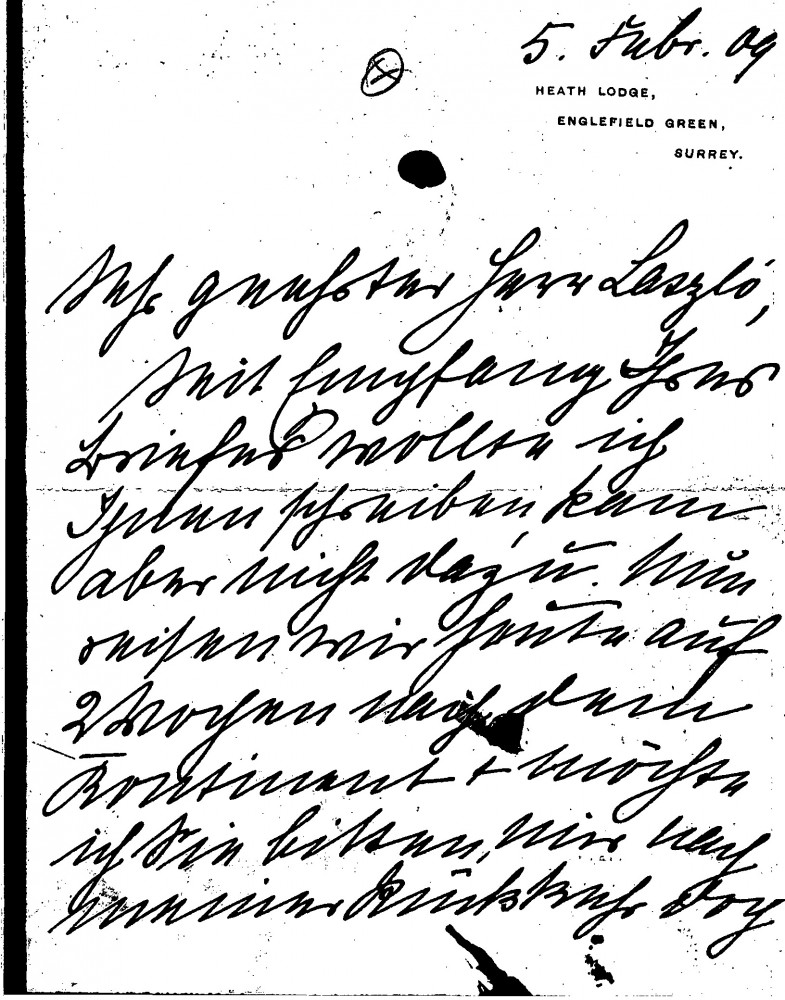 5. Febr. 09
HEATH LODGE,
ENGLEFIELD GREEN,
SURREY.
Sehr geehrter Herr László,
Seit Empfang Ihres
Briefes wollte ich
Ihnen schreiben, kam
aber nicht dazu. Nun
reisen wir heute auf
2 Wochen nach dem
Kontinent + möchte
ich Sie bitten, mir nach
meiner Rückkehr doch